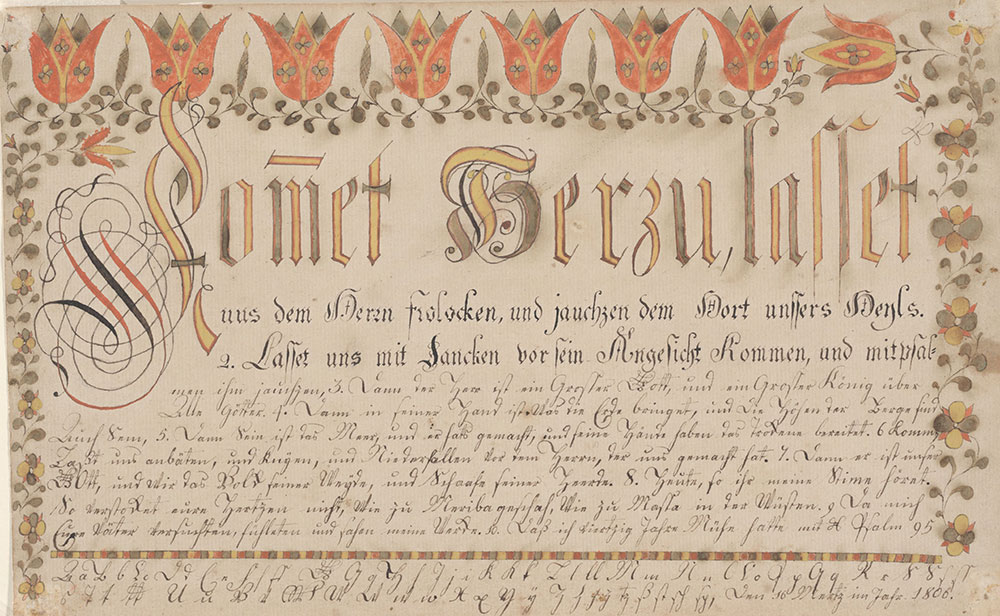 Kom̅et Herzu, lasset
uns dem Herrn frolocken, und jauchzen dem Hort unssers Heyls.
2. Lasset uns mit Dancken vor sein Angesicht Kommen, und mit psal-
men ihm jauchzen, 3. Dann der Herr ist ein Grosser Gott, und ein Grosser König über
Alle Götter. 4. Dann in seiner Hand ist was die Erde bringet, und die Höhen der Berge sind
Auch Sein, 5. Dann Sein ist das Meer, und er hats gemacht, und seine Hände haben das trockene bereitet. 6 Kommt
Last uns anbäten, und Knÿen, und Niederfallen vor dem Herrn, der uns gemacht hat 7. Dann er ist unser
GOtt, und wir das Volck seiner Weÿde, und Schaafe seiner Heerde. 8. Heute, so ihr meine Stime höret.
So verstocket eure Hertzen nicht, Wie zu Meriba geschah, Wie zu Massa in der Wüsten. 9 Da mich
Eure Väter versuchten, fühleten und sahen meine Wercke. 10. Daß ich viertzig Jahre Mühe hatte mit &c Psalm 95
Den 10 Mertz im Jahr. 1806.